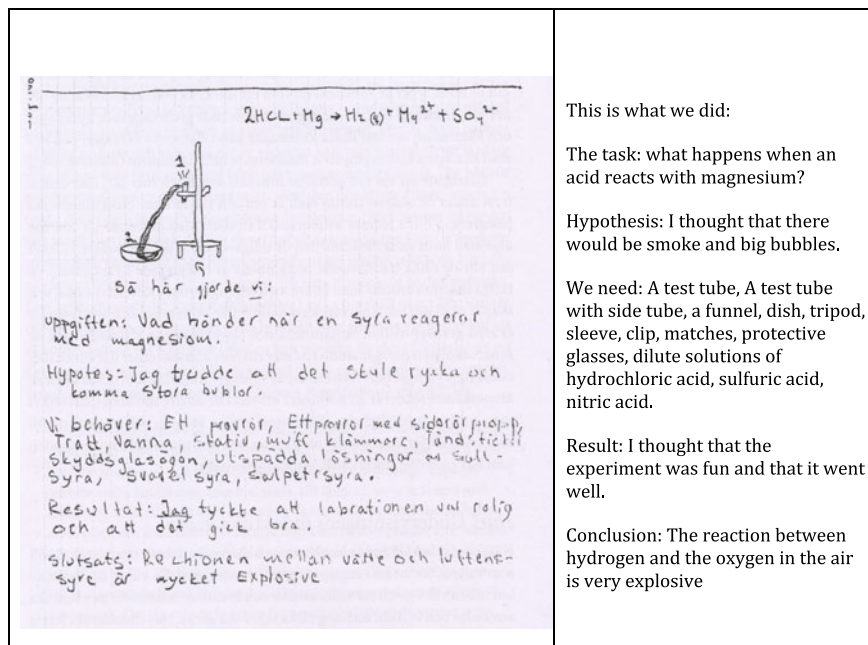 2HCl + Mg → H2(g) + Mg2+ + SO4 2-
1
2
Så här gjorde vi:
Uppgiften: Vad händer när en syra reagerar
med magnesiom.
Hypotes: Jag trodde att det skule rycka och
komma stora bublor.
Vi behöver: Ett provrör, Ett provrör med sidorör, propp,
Tratt, Vanna, stativ, muff, klämmare, tändstickor
skyddsglasögon, utspädda lösningar av salt-
syra, svavelsyra, salpetrsyra.
Resultat: Jag tyckte att labrationen var rolig
och att det gick bra.
Slutsats: Rechionen mellan väte och luftens-
syre är mycket Explosive
This is what we did:
The task: what happens when an
acid reacts with magnesium?
Hypothesis: I thought that there
would be smoke and big bubbles.
We need: A test tube, A test tube
with side tube, a funnel, dish, tripod,
sleeve, clip, matches, protective
glasses, dilute solutions of
hydrochloric acid, sulfuric acid,
nitric acid.
Result: I thought that the
experiment was fun and that it went
well.
Conclusion: The reaction between
hydrogen and the oxygen in the air
is very explosive